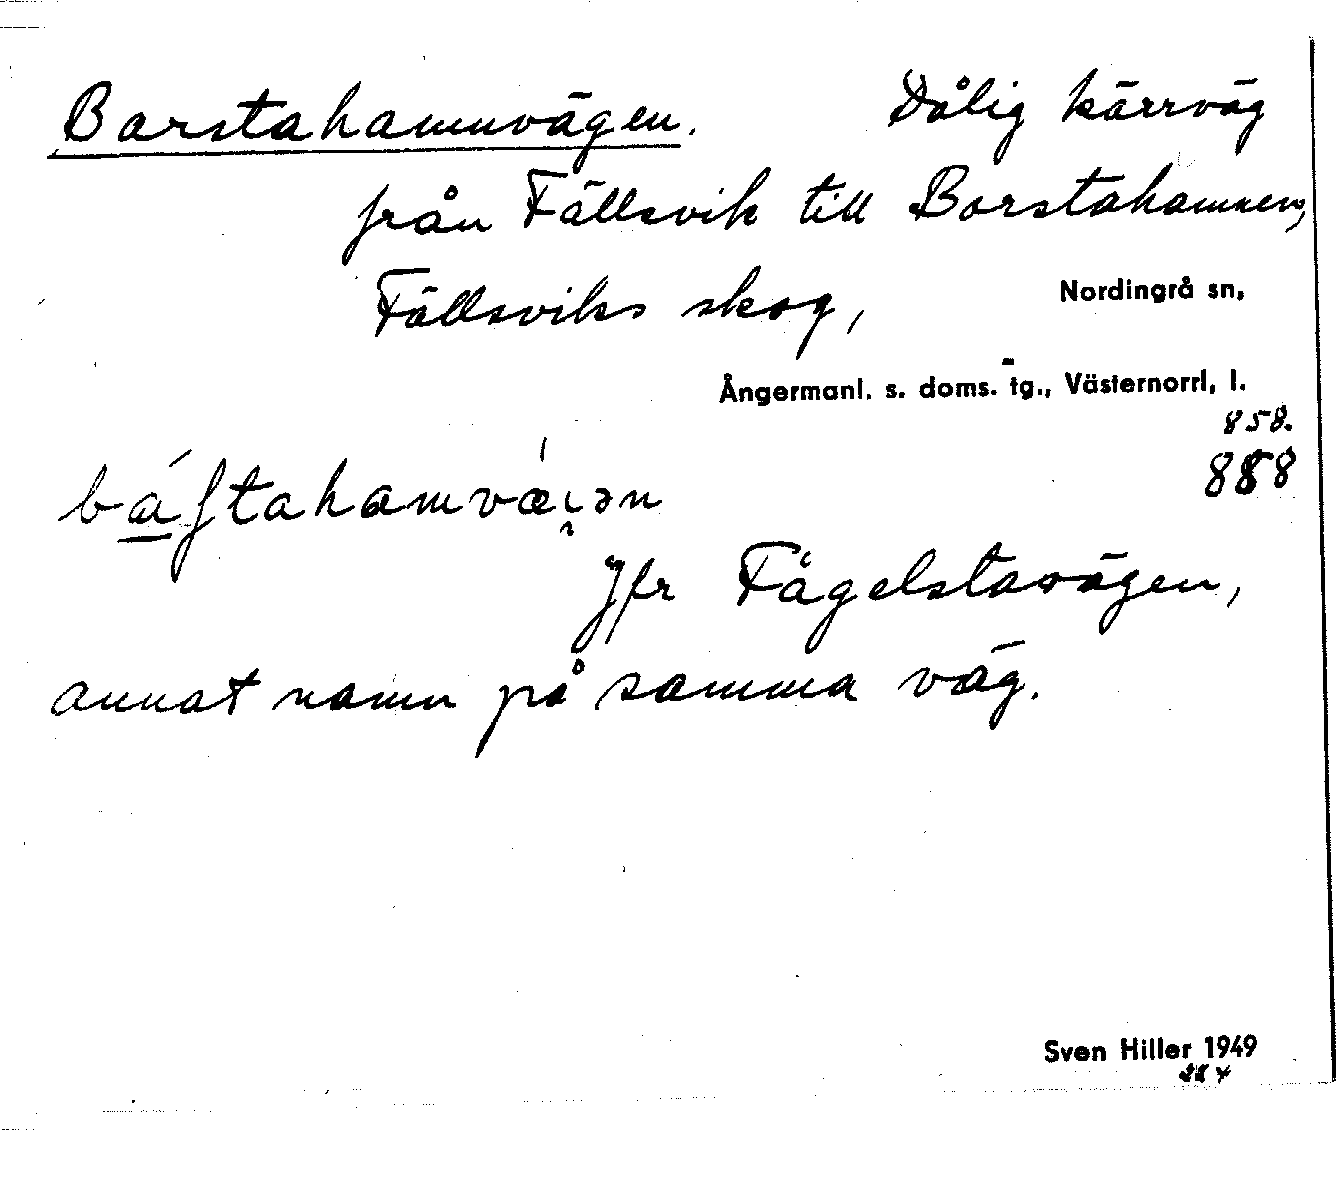 Borstahamnvägen. Dålig kärrväg
från Fällsvik till Borstahamnen,
Fällsviks skog,
Nordingrå sn,
Ångermanl. s. doms. tg., Västernorrl, l.
858.
888
Jfr Fågelstavägen,
annat namn på samma väg.
Sven Hiller 1949